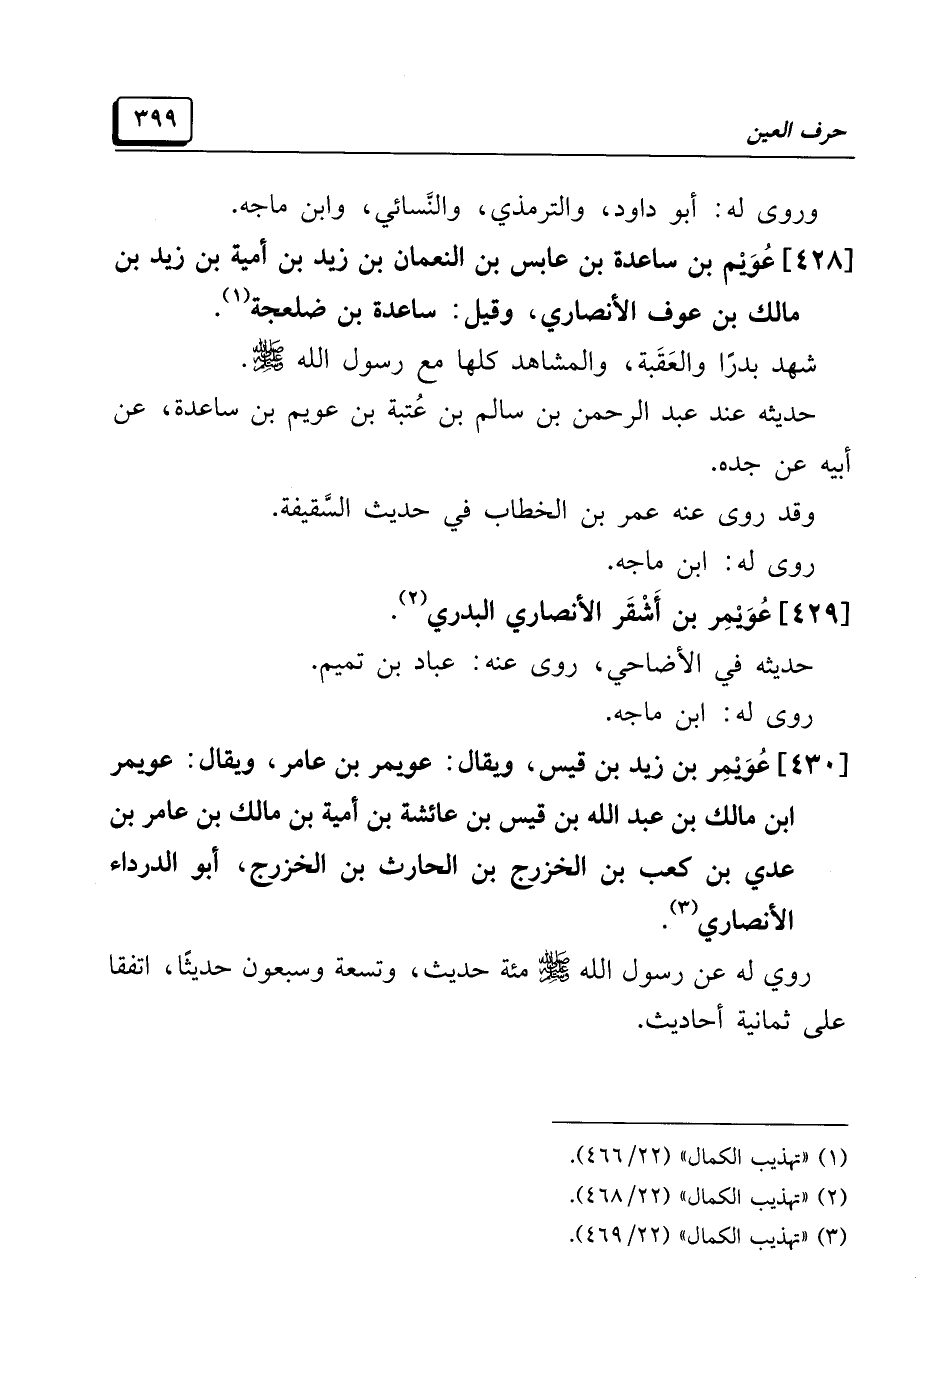 حرف العين
٣٩٩
وروى له: أبو داود، والترمذي، والنَّسائي، وابن ماجه.
[٤٢٨] عُوَيْم بن ساعدة بن عابس بن النعمان بن زيد بن أمية بن زيد بن
مالك بن عوف الأنصاري، وقيل: ساعدة بن ضلعجة(١).
شهد بدرًا والعَقَبة، والمشاهد كلها مع رسول الله ﷺ.
حديثه عند عبد الرحمن بن سالم بن عُتبة بن عويم بن ساعدة، عن
أبيه عن جده.
وقد روى عنه عمر بن الخطاب في حديث السَّقيفة.
روى له: ابن ماجه.
[٤٢٩] عُوَيْمِر بن أَشْقَر الأنصاري البدري(٢).
حديثه في الأضاحي، روى عنه: عباد بن تميم.
روى له: ابن ماجه.
[٤٣٠] عُوَيْمِر بن زيد بن قيس، ويقال: عويمر بن عامر، ويقال: عويمر
ابن مالك بن عبد الله بن قيس بن عائشة بن أمية بن مالك بن عامر بن
عدي بن كعب بن الخزرج بن الحارث بن الخزرج، أبو الدرداء
الأنصاري(٣).
روي له عن رسول الله ﷺ مئة حديث، وتسعة وسبعون حديثًا، اتفقا
على ثمانية أحاديث.
(١) «تهذيب الكمال» (٤٦٦/٢٢).
(٢) «تهذيب الكمال» (٤٦٨/٢٢).
(٣) «تهذيب الكمال» (٤٦٩/٢٢).